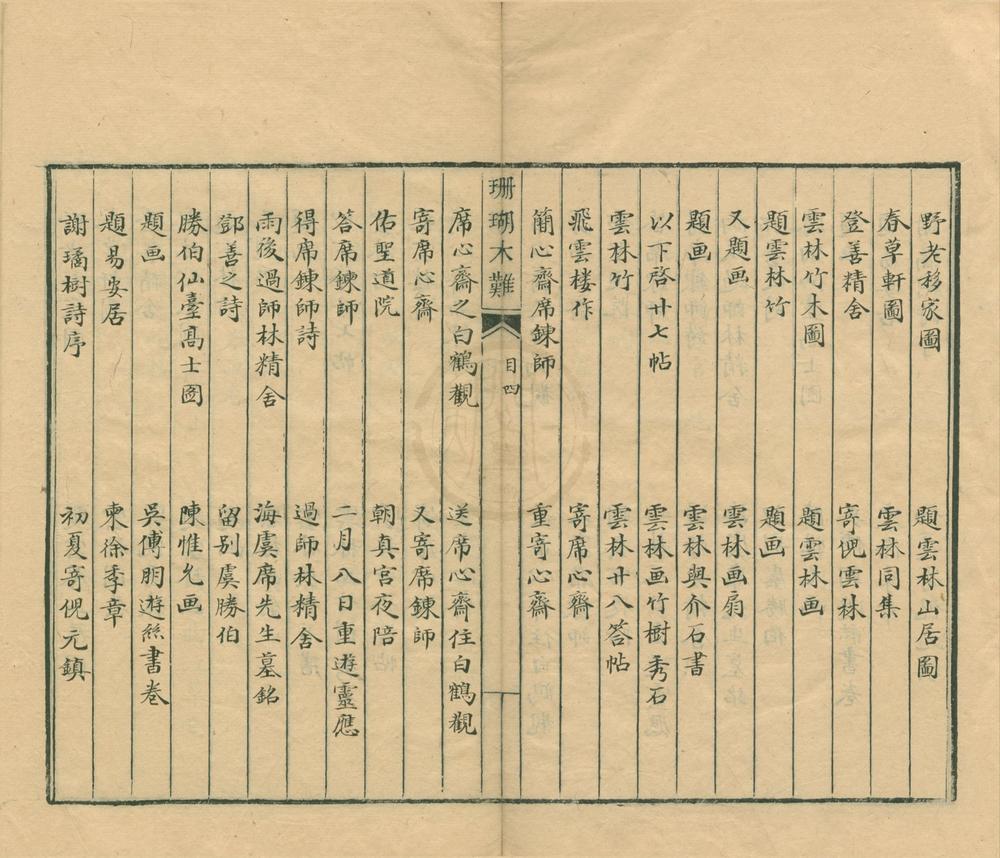 野老移家圖　題雲林山居圖
春草軒圖　雲林同集
登善精舍　寄倪雲林
雲林竹木圖　題雲林画
題雲林竹　題画
又題画　雲林画扇
題画　雲林與介石書
以下啓廿七帖　雲林画竹樹秀石
雲林竹　雲林廿八答帖
飛雲樓作　寄席心齋
簡心齋席鍊師　重寄心齋
珊瑚木難　目四
席心齋之白鶴觀　送席心齋住白鶴觀
寄席心齋　又寄席鍊師
佑聖道院　朝真宮夜陪
答席鍊師　二月八日重遊靈應
得席鍊師詩　過師林精舍
雨後過師林精舍　海虞席先生墓銘
鄧善之詩　留别虞勝伯
勝伯仙臺高士圖　陳惟允画
題画　吳傅朋遊絲書卷
題易安居　柬徐季章
謝璚樹詩序　初夏寄倪元鎮